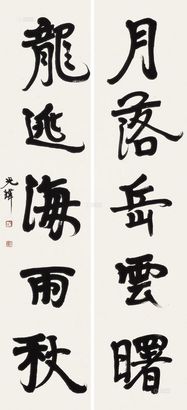 月落岳雲曙
龍逃海雨秋
光緯